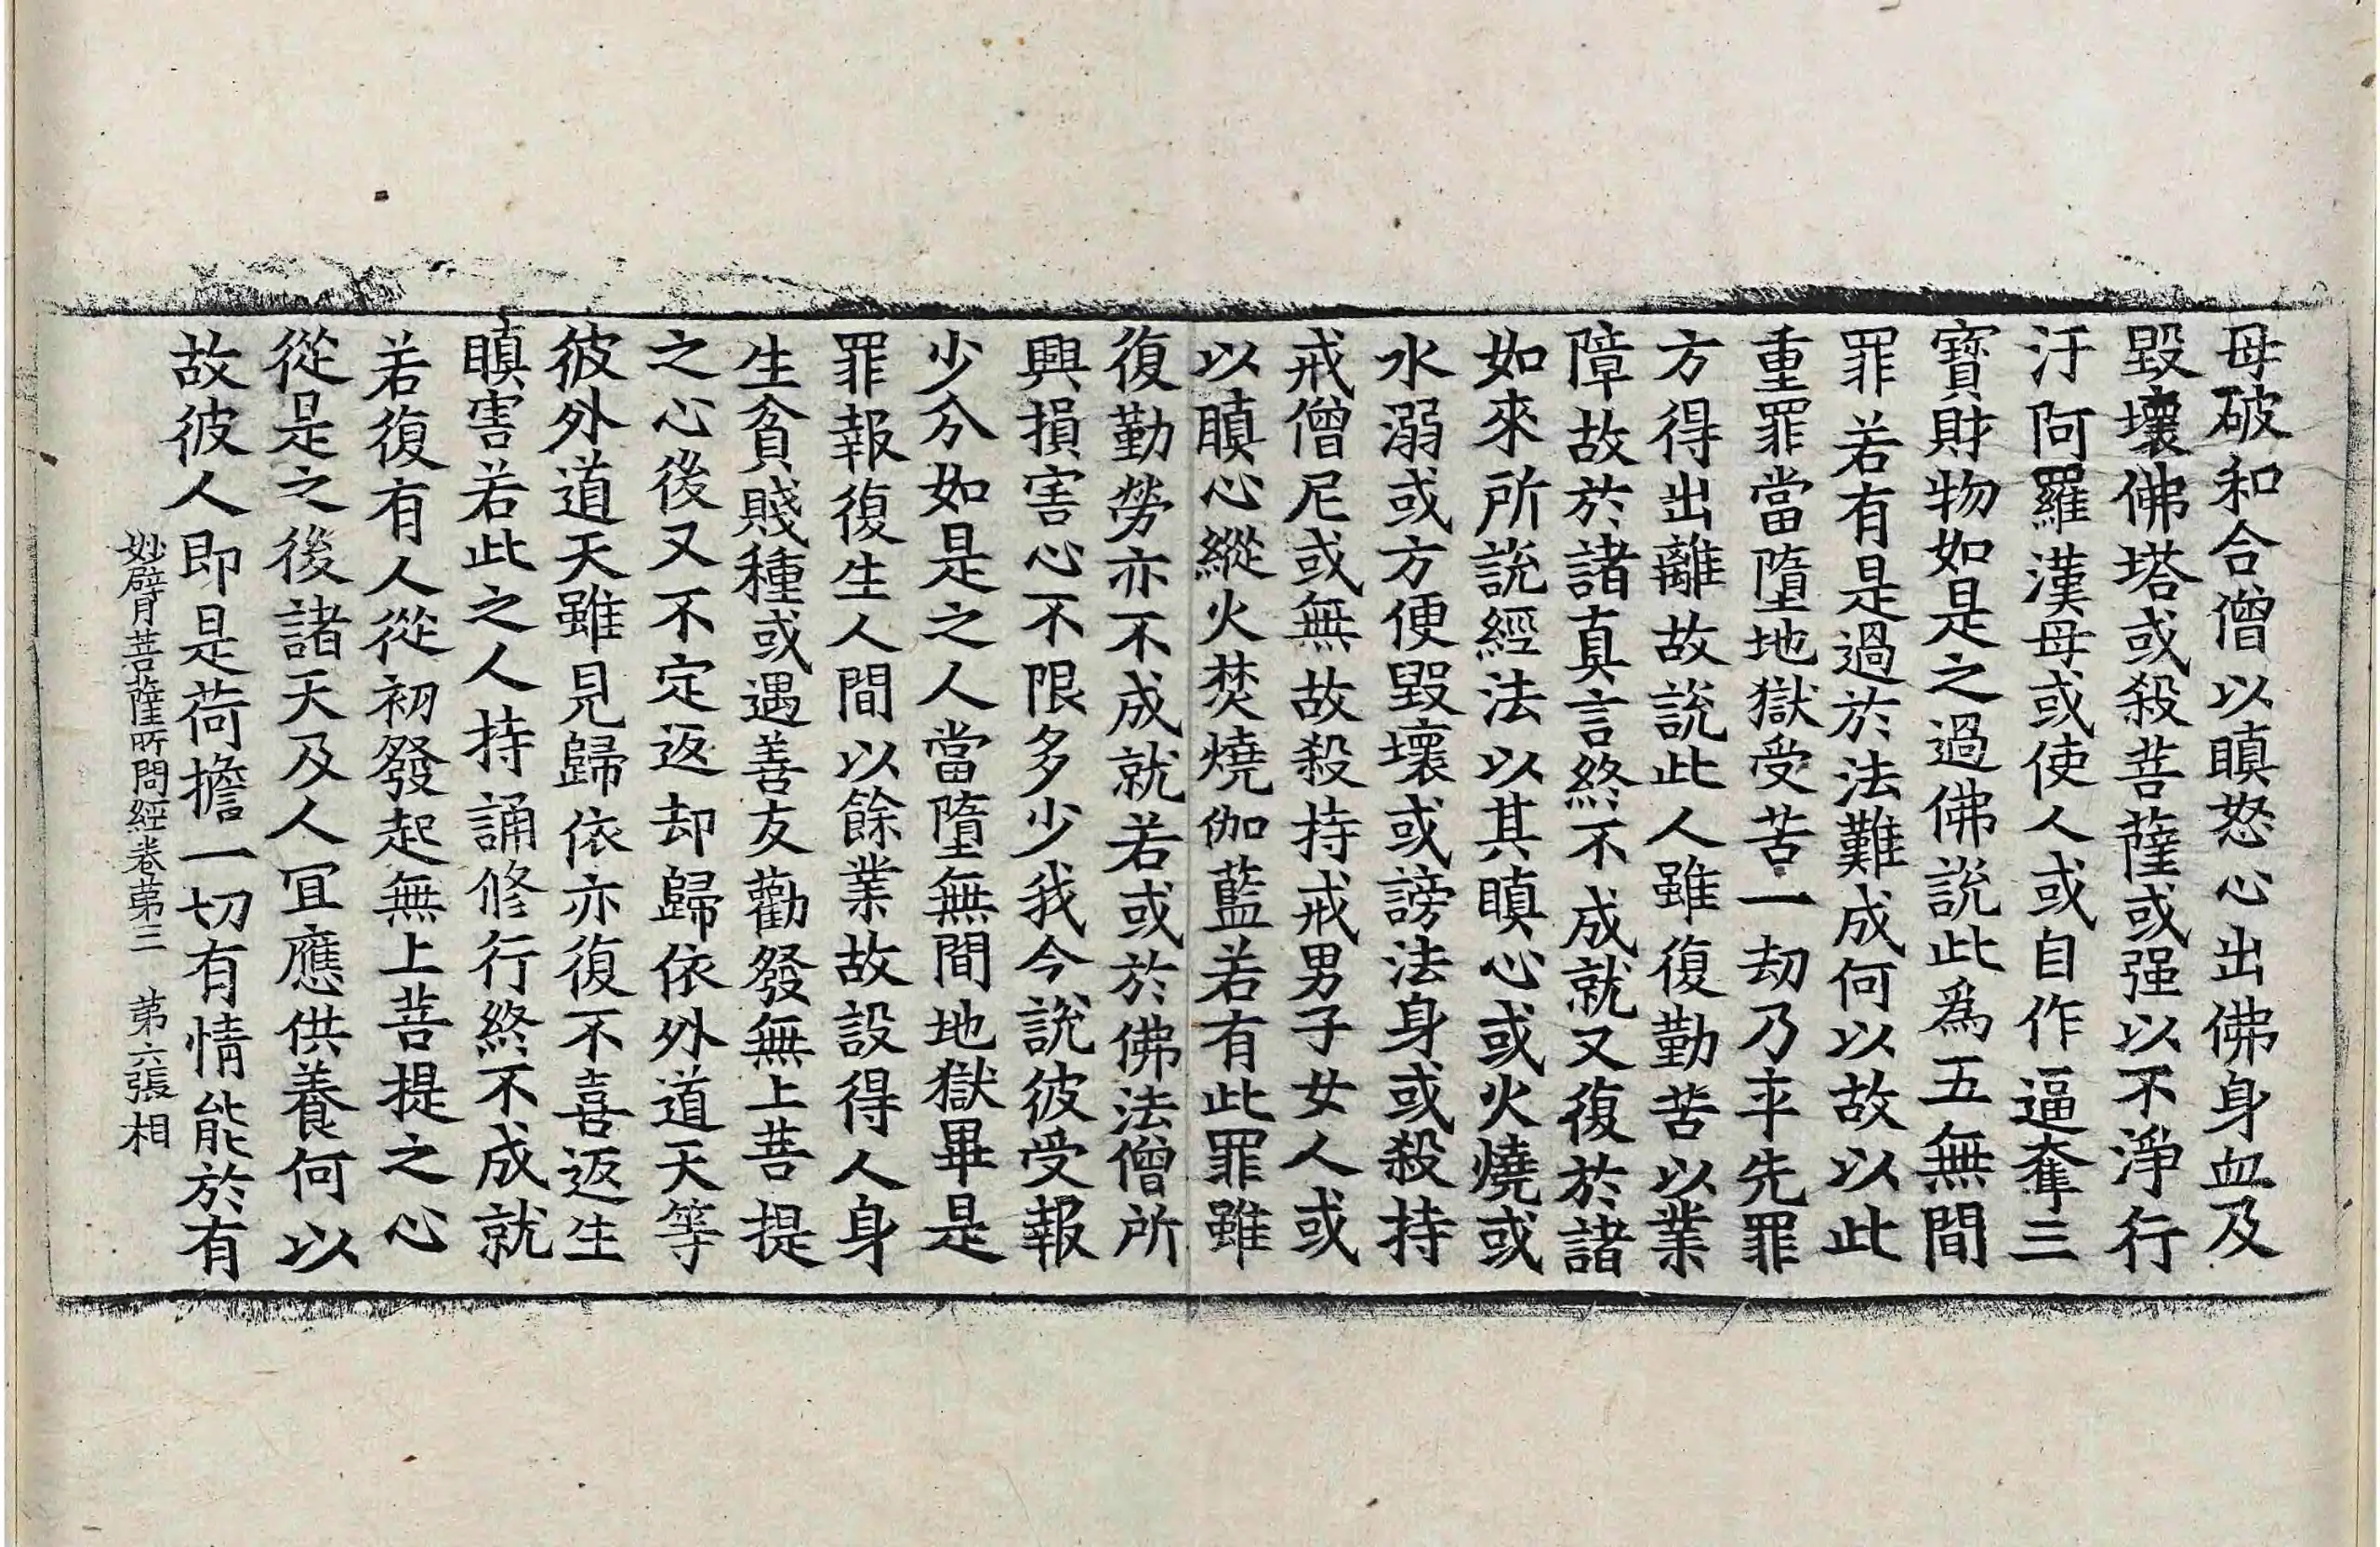 母破和合僧以瞋怒心出佛身血及
毀壞佛塔或殺菩薩或强以不淨行
汙阿羅漢母或使人或自作逼奪三
寶財物如是之過佛說此爲五無間
罪若有是過於法難成何以故以此
重罪當墮地獄受苦一劫乃卒先罪
方得出離故說此人雖復勤苦以業
障故於諸真言終不成就又復於諸
如來所說經法以其瞋心或火燒或
水溺或方便毀壞或謗法身或殺持
戒僧尼或無故殺持戒男子女人或
以瞋心縱火焚燒伽藍若有此罪雖
復勤勞亦不成就若或於佛法僧所
興損害心不限多少我今說彼受報
少分如是之人當墮無間地獄畢是
罪報復生人間以餘業故設得人身
生貧賤種或遇善友勸發無上菩提
之心後又不定返却歸依外道天等
彼外道天雖見歸依亦復不喜返生
瞋害若此之人持誦修行終不成就
若復有人從初發起無上菩提之心
從是之後諸天及人冝應供養何以
故彼人即是荷擔一切有情能於有
妙臂菩薩所問經卷第三 第六張 相